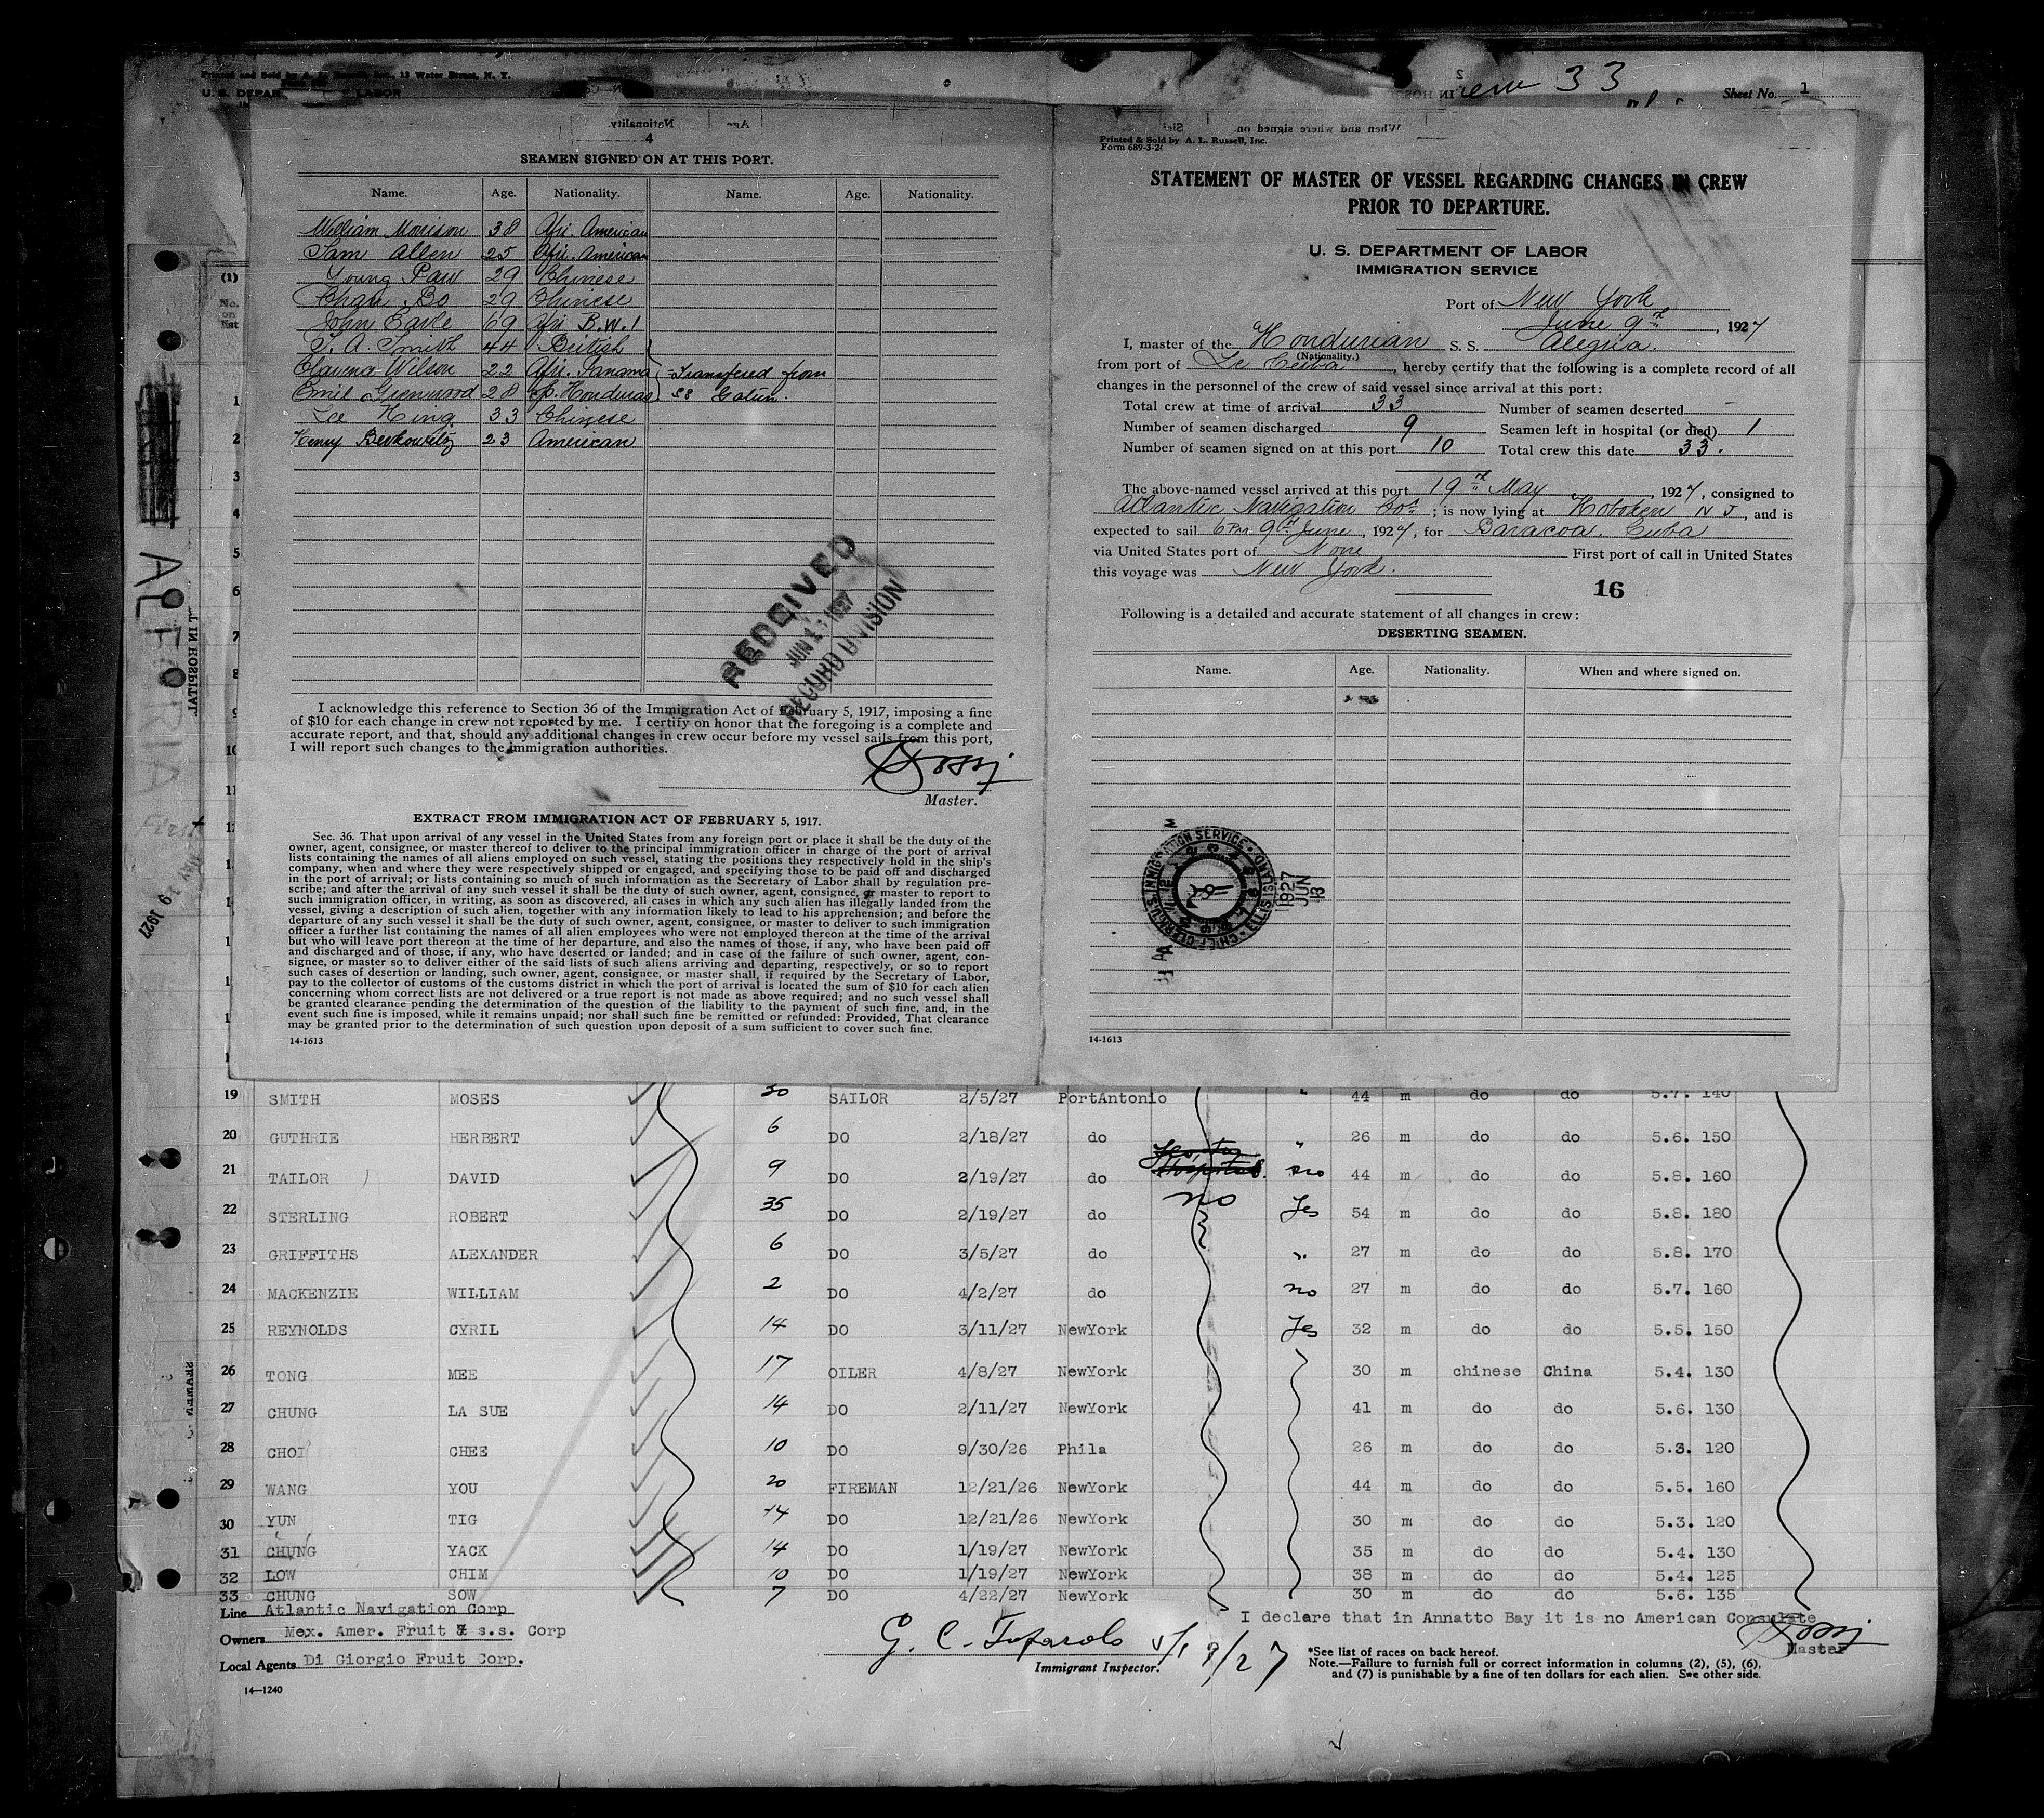 Printed and Sold by A. L. Russell, Inc., 12 Water Street, N. Y.
U. S. DEPAR LABOR
Crew 33
Sheet No. 1
4
SEAMEN SIGNED ON AT THIS PORT.
Name. Age. Nationality. Name. Age. Nationality.
William Morrison 38 Afr. American
Sam Allen 25 Afr. American
Young Paw 29 Chinese
Chan Bo 29 Chinese
John Earle 69 Afr B.W.I
T. A. Smith 44 British
Clarence Wilson 22 Afr. Panama =Transfered from
Emil Greenwood 28 Sp. Honduras SS Gatun.
Lee King. 33 Chinese
Henry Berkowitz 23 American
RECEIVED
JUN 1927
RECORD DIVISION
I acknowledge this reference to Section 36 of the Immigration Act of February 5, 1917, imposing a fine
of $10 for each change in crew not reported by me. I certify on honor that the foregoing is a complete and
accurate report, and that, should any additional changes in crew occur before my vessel sails from this port,
I will report such changes to the immigration authorities.
Master.
EXTRACT FROM IMMIGRATION ACT OF FEBRUARY 5, 1917.
Sec. 36. That upon arrival of any vessel in the United States from any foreign port or place it shall be the duty of the
owner, agent, consignee, or master thereof to deliver to the principal immigration officer in charge of the port of arrival
lists containing the names of all aliens employed on such vessel, stating the positions they respectively hold in the ship's
company, when and where they were respectively shipped or engaged, and specifying those to be paid off and discharged
in the port of arrival; or lists containing so much of such information as the Secretary of Labor shall by regulation pre-
scribe; and after the arrival of any such vessel it shall be the duty of such owner, agent, consignee, or master to report to
such immigration officer, in writing, as soon as discovered, all cases in which any such alien has illegally landed from the
vessel, giving a description of such alien, together with any information likely to lead to his apprehension; and before the
departure of any such vessel it shall be the duty of such owner, agent, consignee, or master to deliver to such immigration
officer a further list containing the names of all alien employees who were not employed thereon at the time of the arrival
but who will leave port thereon at the time of her departure, and also the names of those, if any, who have been paid off
and discharged and of those, if any, who have deserted or landed; and in case of the failure of such owner, agent, con-
signee, or master so to deliver either of the said lists of such aliens arriving and departing, respectively, or so to report
such cases of desertion or landing, such owner, agent, consignee, or master shall, if required by the Secretary of Labor,
pay to the collector of customs of the customs district in which the port of arrival is located the sum of $10 for each alien
concerning whom correct lists are not delivered or a true report is not made as above required; and no such vessel shall
be granted clearance pending the determination of the question of the liability to the payment of such fine, and, in the
event such fine is imposed, while it remains unpaid; nor shall such fine be remitted or refunded: Provided, That clearance
may be granted prior to the determination of such question upon deposit of a sum sufficient to cover such fine.
14-1613
Printed & Sold by A. L. Russell, Inc.
Form 689-3-26
STATEMENT OF MASTER OF VESSEL REGARDING CHANGES IN CREW
PRIOR TO DEPARTURE.
U. S. DEPARTMENT OF LABOR
IMMIGRATION SERVICE
Port of New York
June 9th, 1927
I, master of the Hondurian S. S. Alegria.
(Nationality.)
from port of La Ceiba, hereby certify that the following is a complete record of all
changes in the personnel of the crew of said vessel since arrival at this port:
Total crew at time of arrival 33 Number of seamen deserted -
Number of seamen discharged 9 Seamen left in hospital (or died) 1
Number of seamen signed on at this port 10 Total crew this date 33.
The above-named vessel arrived at this port 19th May, 1927, consigned to
Atlantic Navigation Co; is now lying at Hoboken N J, and is
expected to sail 6 PM 9th June, 1927, for Baracoa. Cuba
via United States port of None First port of call in United States
this voyage was New York.
16
Following is a detailed and accurate statement of all changes in crew:
DESERTING SEAMEN.
Name. Age. Nationality. When and where signed on.
U.S. IMMIGRATION SERVICE CHIEF CLERK ELLIS ISLAND
1927
JUN
13
14-1613
ALEGRIA
First
May 19 1927
(1)
No.
on
list
1
2
3
4
5
6
7
8
9
10
11
19 SMITH MOSES 30 SAILOR 2/5/27 PortAntonio 44 m do do 5.7. 140
20 GUTHRIE HERBERT 6 DO 2/18/27 do " 26 m do do 5.6. 150
21 TAILOR DAVID 9 DO 2/19/27 do Hospital. no 44 m do do 5.8. 160
22 STERLING ROBERT 35 DO 2/19/27 do no Yes 54 m do do 5.8. 180
23 GRIFFITHS ALEXANDER 6 DO 3/5/27 do " 27 m do do 5.8. 170
24 MACKENZIE WILLIAM 2 DO 4/2/27 do no 27 m do do 5.7. 160
25 REYNOLDS CYRIL 14 DO 3/11/27 NewYork Yes 32 m do do 5.5. 150
26 TONG MEE 17 OILER 4/8/27 NewYork 30 m chinese China 5.4. 130
27 CHUNG LA SUE 14 DO 2/11/27 NewYork 41 m do do 5.6. 130
28 CHOI CHEE 10 DO 9/30/26 Phila 26 m do do 5.3. 120
29 WANG YOU 20 FIREMAN 12/21/26 NewYork 44 m do do 5.5. 160
30 YUN TIG 14 DO 12/21/26 NewYork 30 m do do 5.3. 120
31 CHUNG YACK 14 DO 1/19/27 NewYork 35 m do do 5.4. 130
32 LOW CHIM 10 DO 1/19/27 NewYork 38 m do do 5.4. 125
33 CHUNG SOW 7 DO 4/22/27 NewYork 30 m do do 5.6. 135
Line Atlantic Navigation Corp
I declare that in Annatto Bay it is no American Consulate
Owners Mex. Amer. Fruit & s.s. Corp
Master
Local Agents Di Giorgio Fruit Corp.
5/19/27
Immigrant Inspector.
*See list of races on back hereof.
Note.—Failure to furnish full or correct information in columns (2), (5), (6),
and (7) is punishable by a fine of ten dollars for each alien. See other side.
14—1240